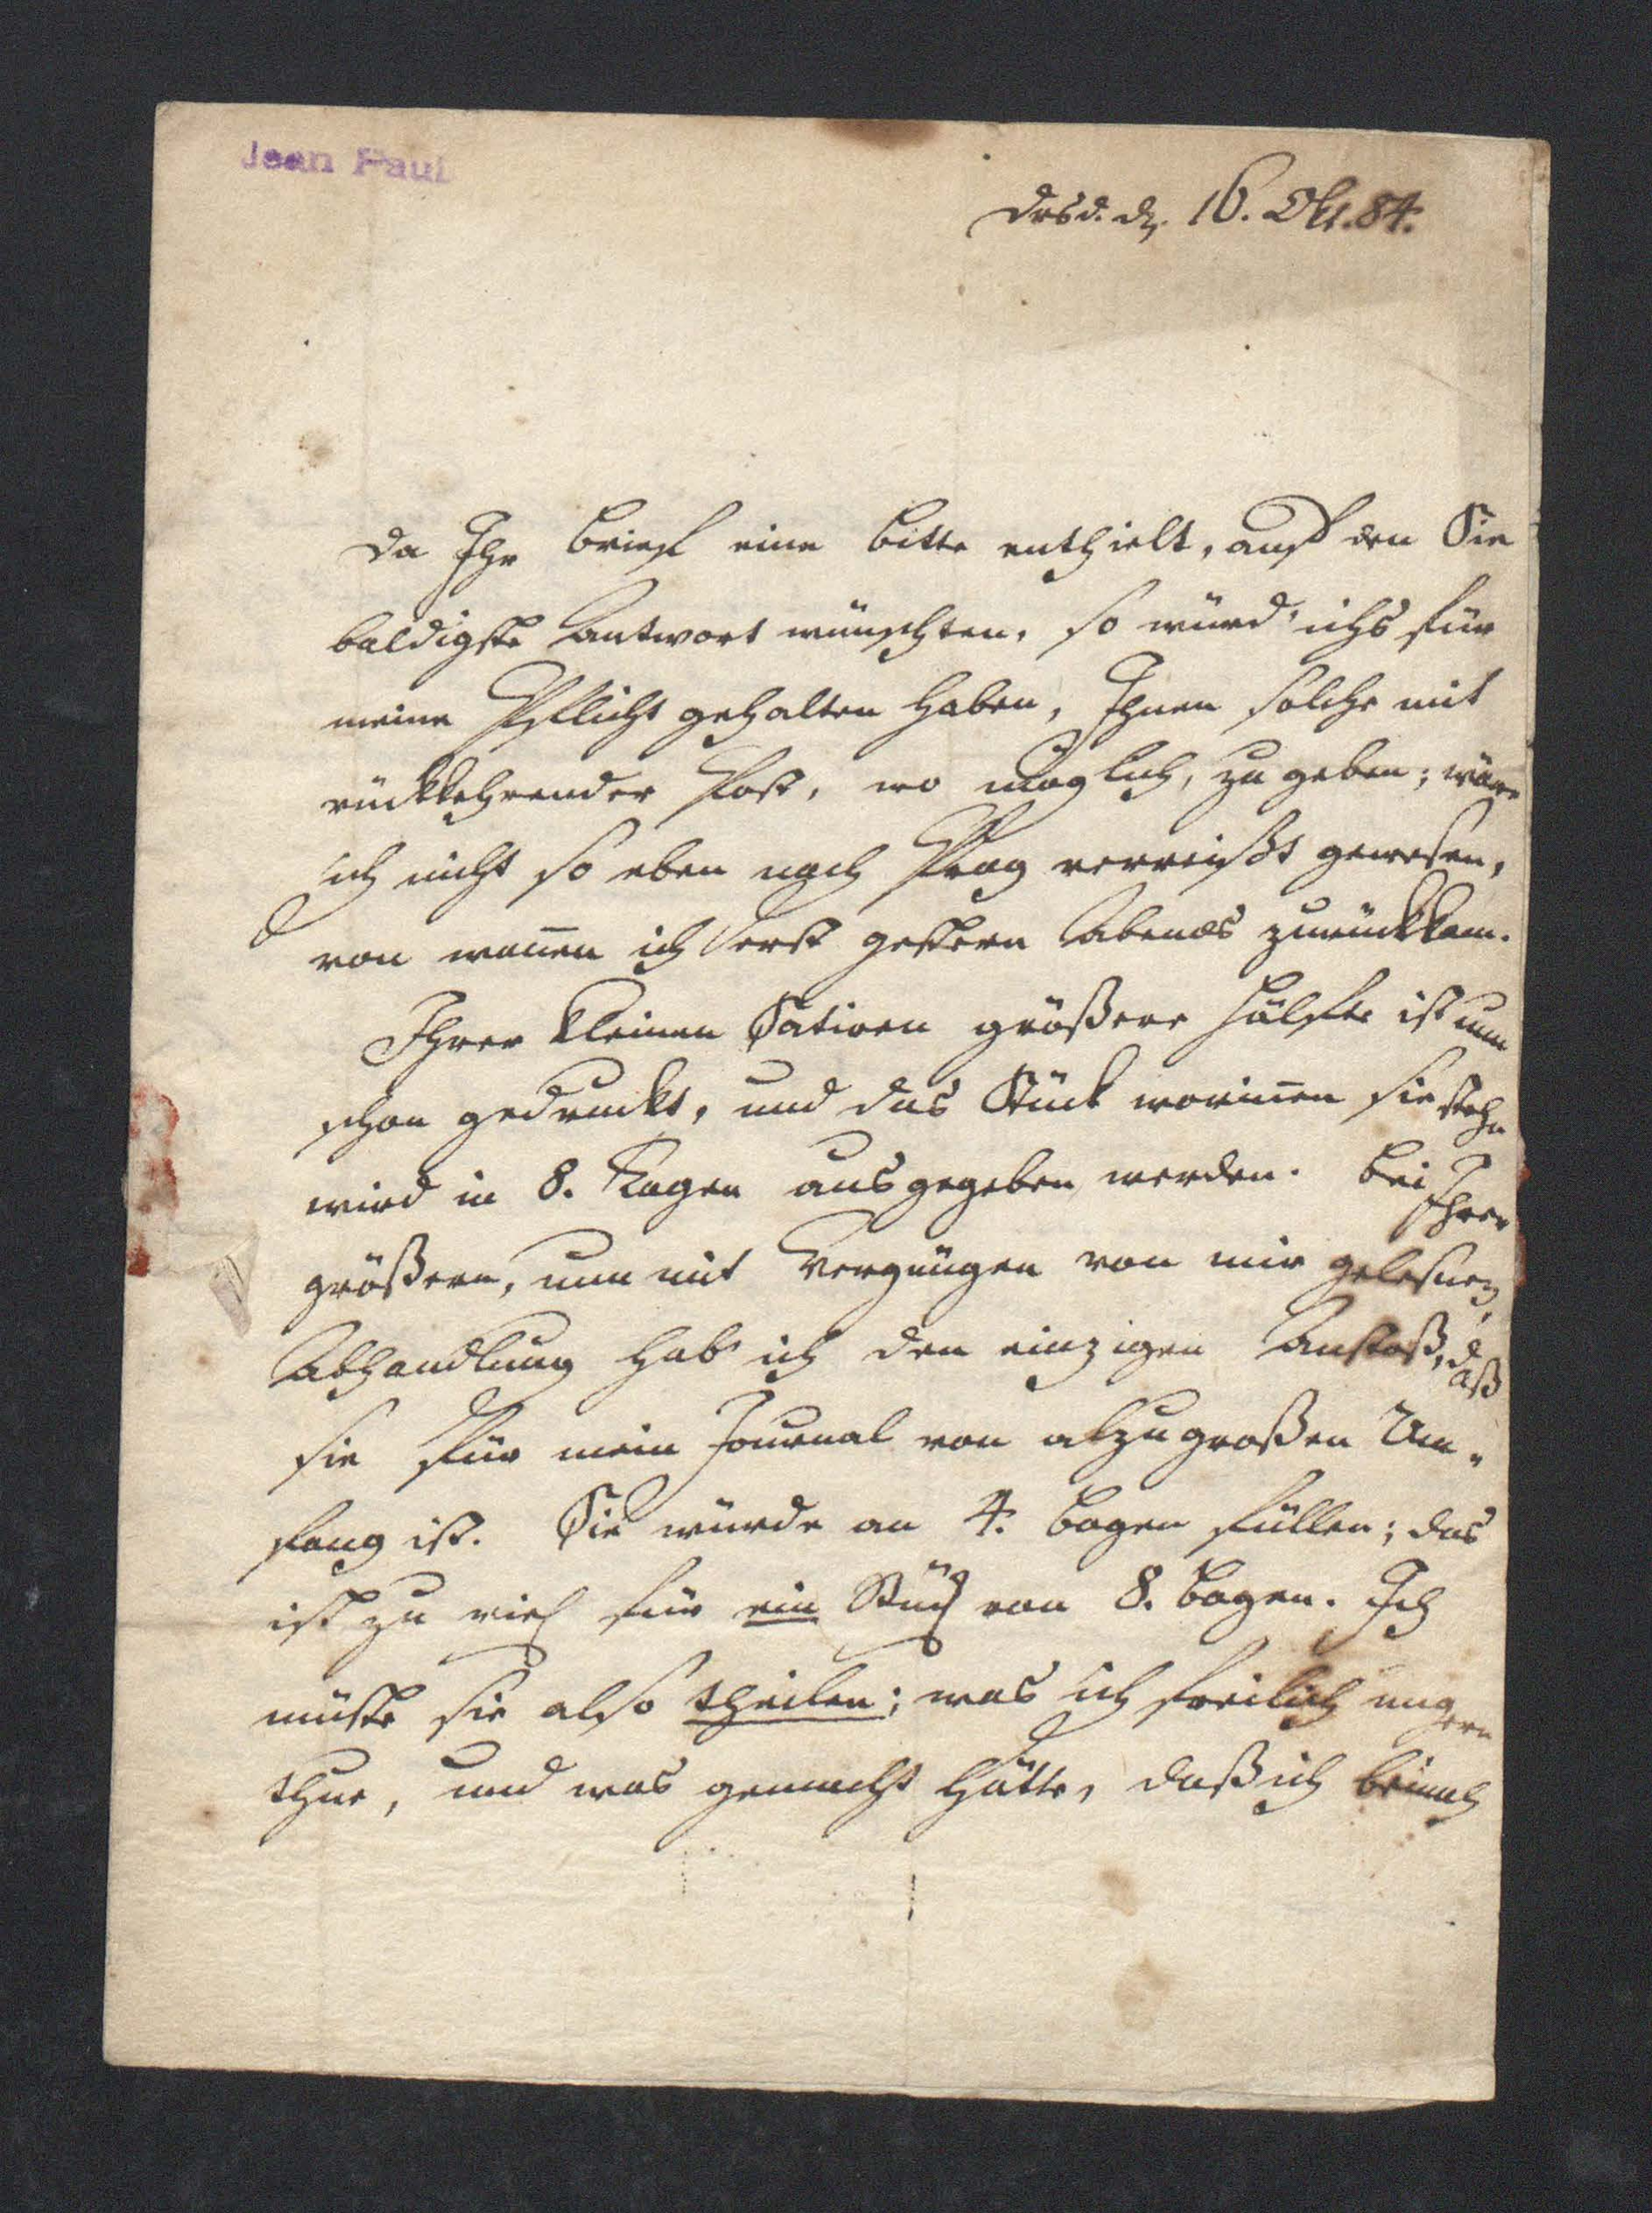 Jean Paul
Dresd. dn. 16. Okt. 84.
Da Ihr Brief eine Bitte enthielt, auf den Sie
baldigste Antwort wünschten, so würd' ichs für
meine Pflicht gehalten haben, Ihnen solche mit
rückkehrender Post, wo möglich, zu geben; wäre
ich nicht so eben nach Prag verreißt gewesen,
von wannen ich erst gestern Abends zurückkam.
Ihrer kleinen Satiren größere Hälfte ist nun
schon gedruckt, und das Stück worinnen sie stehn
wird in 8. Tagen ausgegeben werden. Bei Ihrer
größern, nun mit Vergnügen von mir gelesnen,
Abhandlung hab' ich den einzigen Anstoß, daß
sie für mein Journal von alzugroßen Um-
fang ist. Sie würde an 4. Bogen füllen; das
ist zu viel für ein Stück von 8. Bogen. Ich
müste sie also theilen; was ich freilich ungern
thue, und was gemacht hätte, daß ich beinah